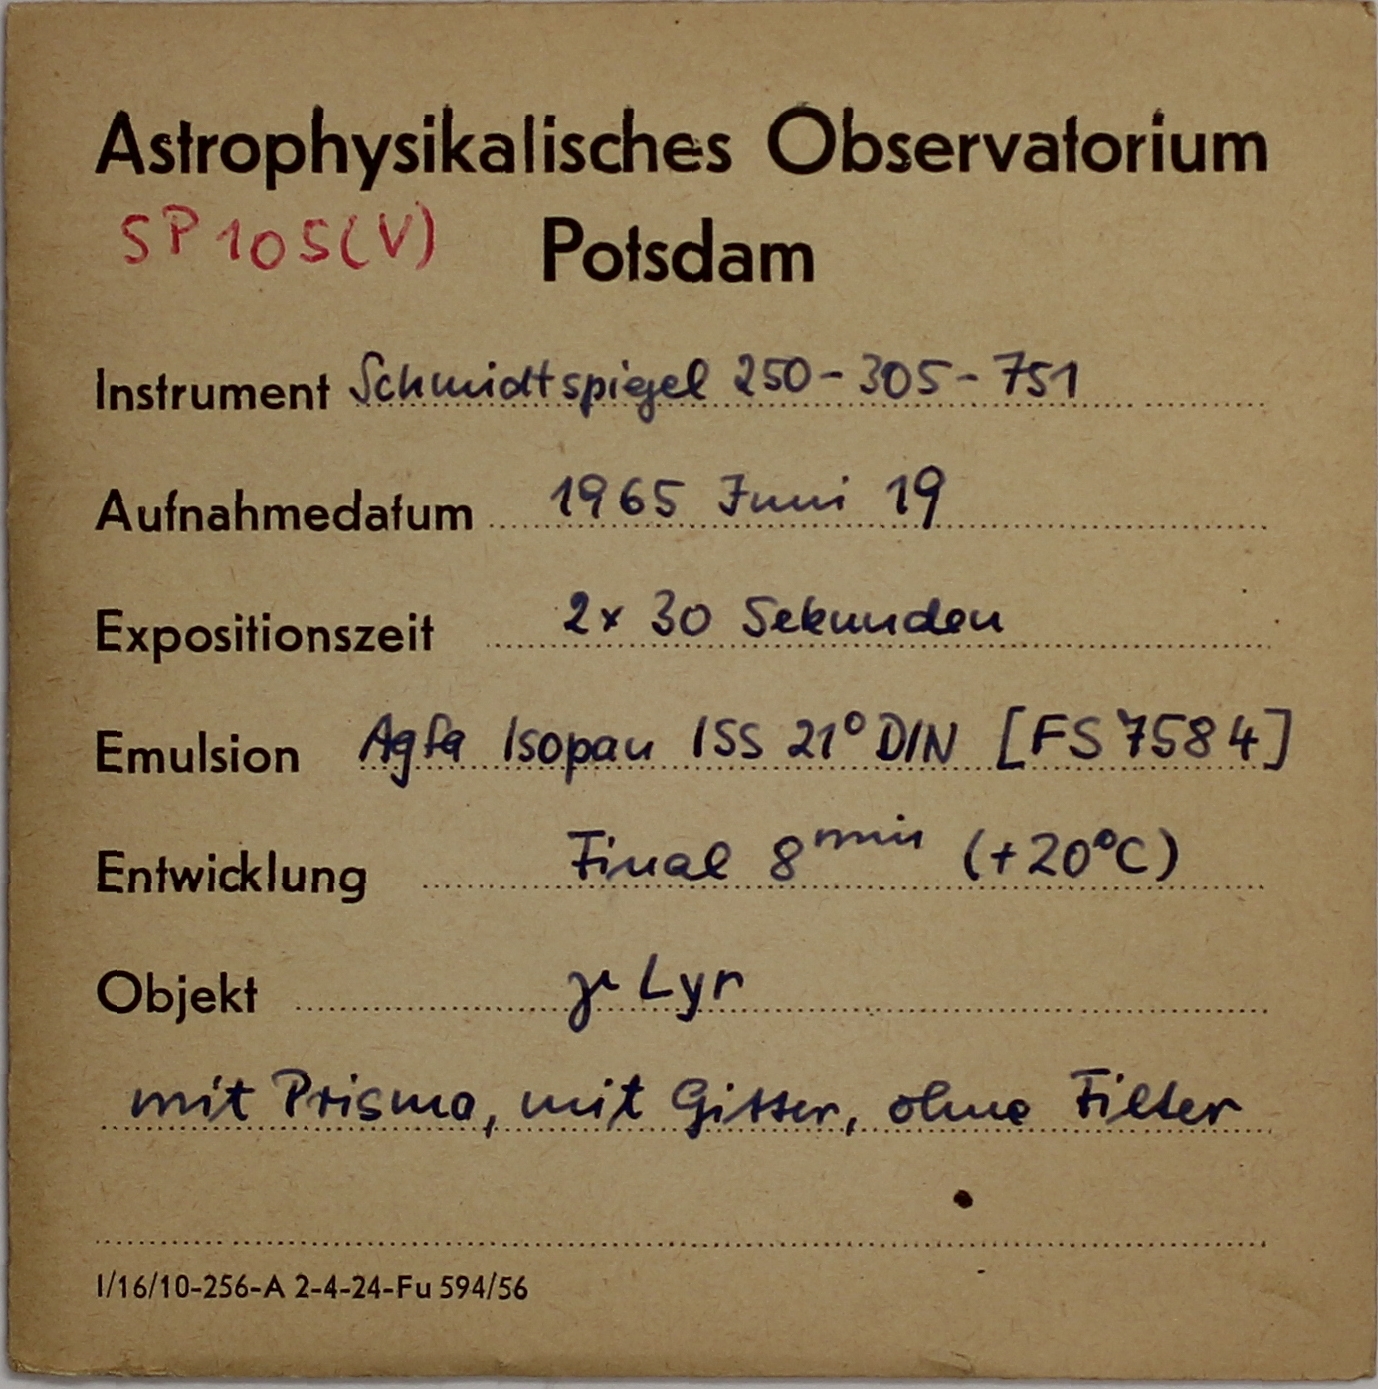 Astrophysikalisches Observatorium
SP 105(V) Potsdam
Instrument Schmidtspiegel 250-305-751
Aufnahmedatum 1965 Juni 19
Expositionszeit 2x 30 Sekunden
Emulsion Agfa Isopan ISS 21° DIN [FS 7584]
Entwicklung Final 8 min (+20°C)
Objekt Lyr
mit Prisma, mit Gitter, ohne Filter
I/16/10-256-A 2-4-24-Fu 594/56